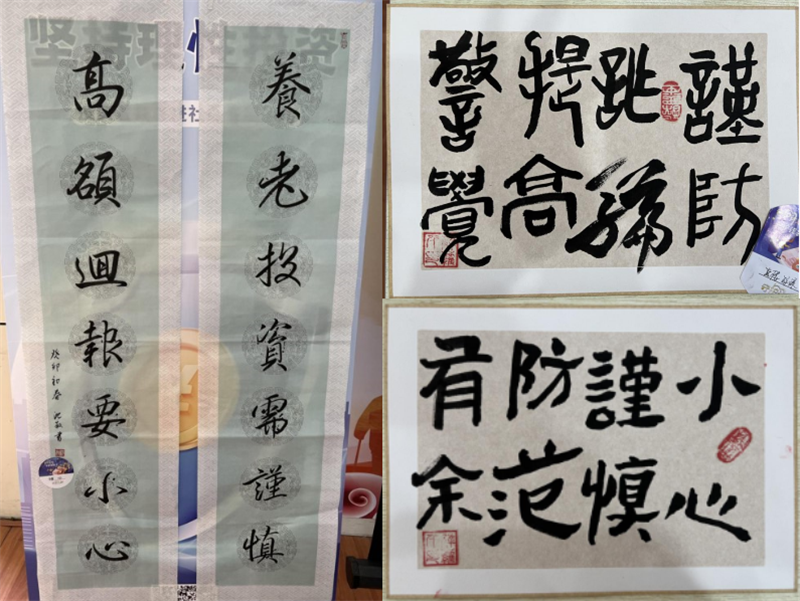 坚持理性投资
養老投資需謹慎
高額迴報要小心
癸卯初春
謹防
跳騙
提高
警覺
小心
謹慎
防范
有余